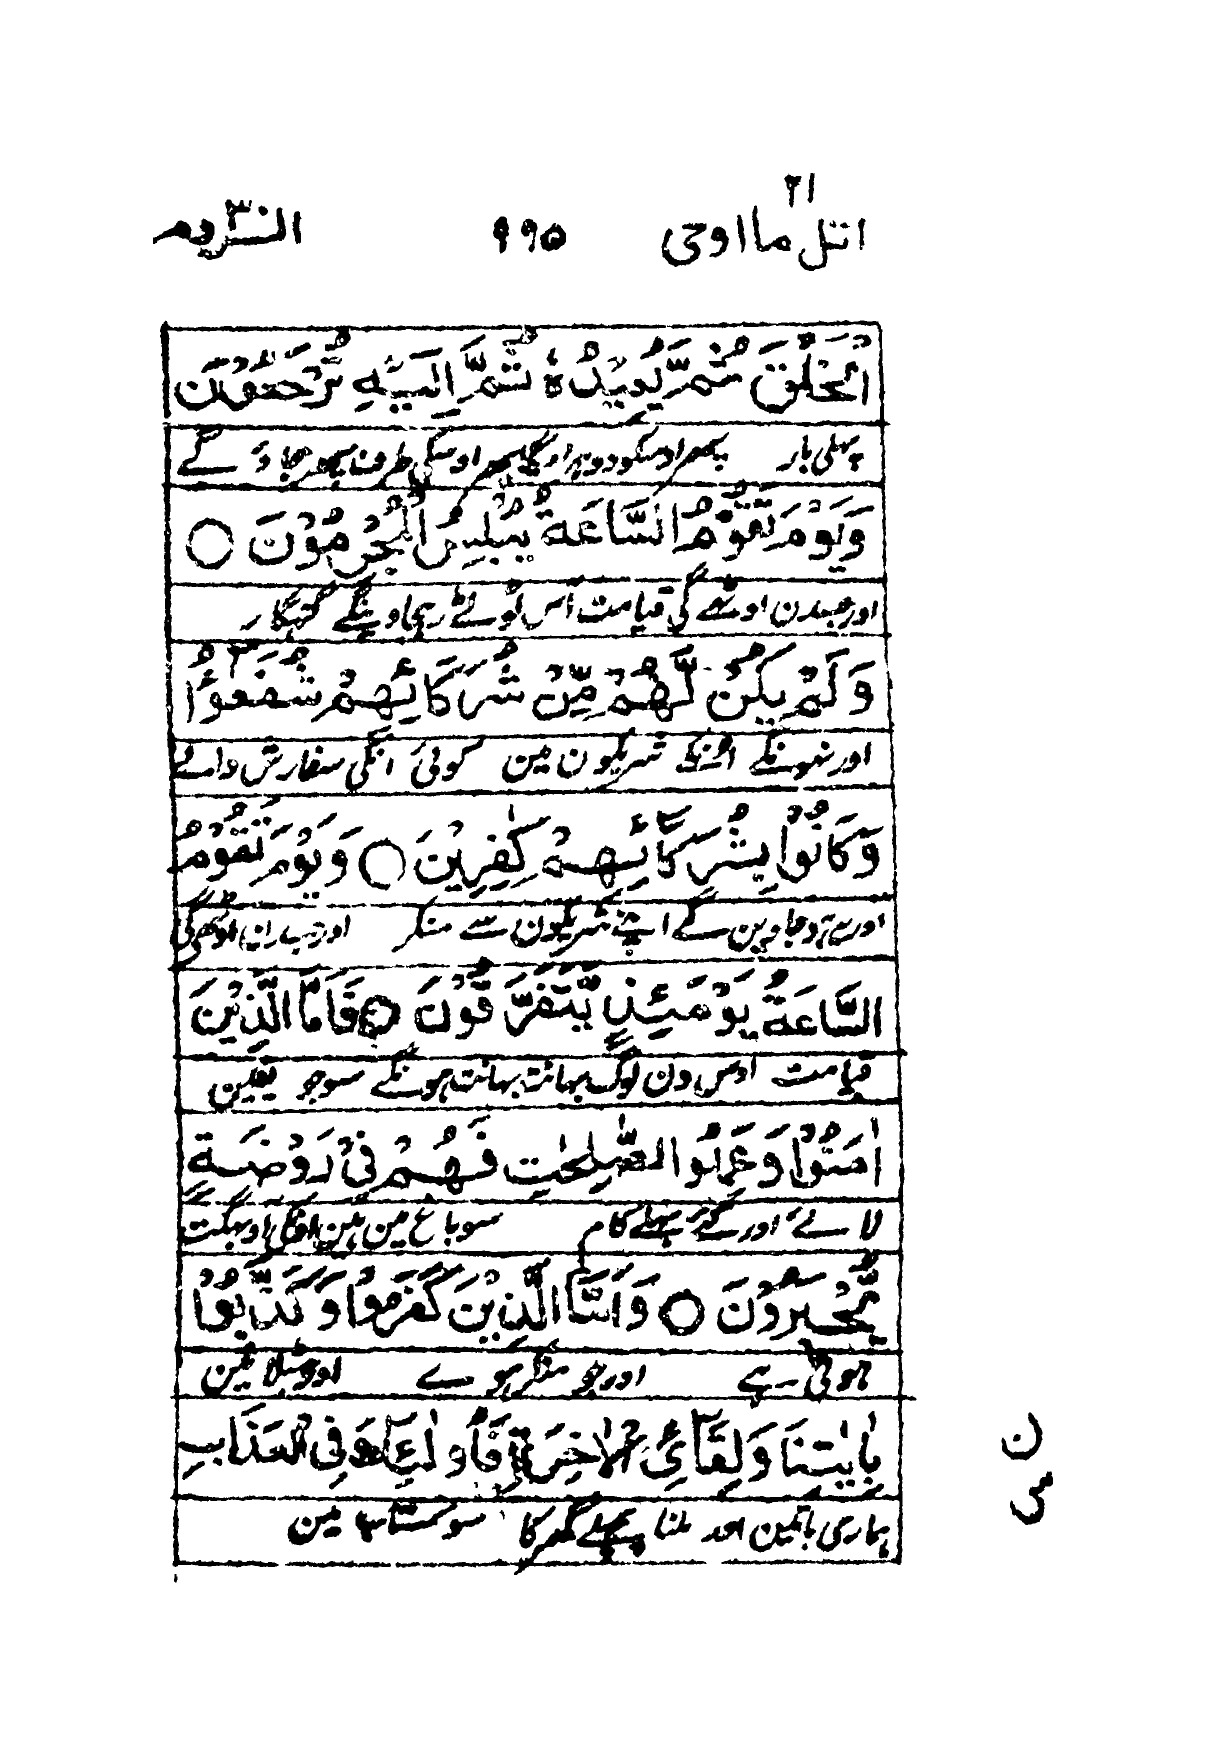 ٢١
اتل ما اوحی ۹۹۵ الروم ٣٠
الْخَلْقَ ثُمَّ يُعِيْدُهٗ ثُمَّ اِلَيْهِ تُرْجَعُوْنَ
پہلی بار پھر اوسکو دوہراویگا پھر اوسکی طرف پھر جاؤ گے
وَيَوْمَ تَقُوْمُ السَّاعَةُ يُبْلِسُ الْمُجْرِمُوْنَ ○
اور جسدن اوٹھے گی قیامت آس ٹوٹے رہجاوینگے گنہگار
وَلَمْ يَكُنْ لَّهُمْ مِّنْ شُرَكَائِهِمْ شُفَعٰٓؤُا
اور نہونگے اونکے شریکون مین کوئی انکی سفارش والے
وَكَانُوْا بِشُرَكَآئِهِمْ كٰفِرِيْنَ ○ وَيَوْمَ تَقُوْمُ
اور یے ہوجاوین گے اپنے شریکون سے منکر اور جسدن اوٹھے گی
السَّاعَةُ يَوْمَئِذٍ يَّتَفَرَّقُوْنَ ○ فَاَمَّا الَّذِيْنَ
قیامت اوس دن لوگ بہانت بہانت ہونگے سو جو یقین
اٰمَنُوْا وَعَمِلُوا الصّٰلِحٰتِ فَهُمْ فِيْ رَوْضَةٍ
لائے اور کئے بھلے کام سو باغ مین ہین اونکی آوبھگت
يُّحْبَرُوْنَ ○ وَاَمَّا الَّذِيْنَ كَفَرُوْا وَكَذَّبُوْا
ہوتی رہے اور جو منکر ہوے اور جھٹلائین
بِاٰيٰتِنَا وَلِقَآئِ الْاٰخِرَةِ فَاُولٰٓئِكَ فِي الْعَذَابِ
ہماری باتین اور ملنا پچھلے گھر کا سو مین
ن
می